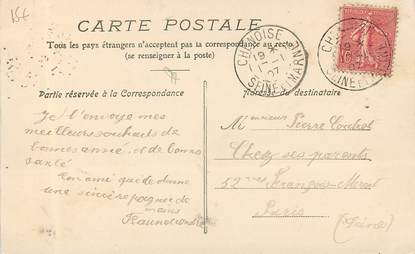 15€
CARTE POSTALE
Tous les pays étrangers n'acceptent pas la correspondance au recto
(se renseigner à la poste)
CHENOISE
19 *
1 - 1
07
SEINE ET MARNE
CHENOISE
19 *
07
SEINE ET MARNE
Partie réservée à la Correspondance
Adresse du destinataire
Je t'envoye mes
meilleurs souhaits de
bonne année et de bonne
santé
ton ami que te donne
une sincère poignée de
mains
Monsieur Pierre
Chez ses parents
52 rue François-Miron
Paris
(Seine)